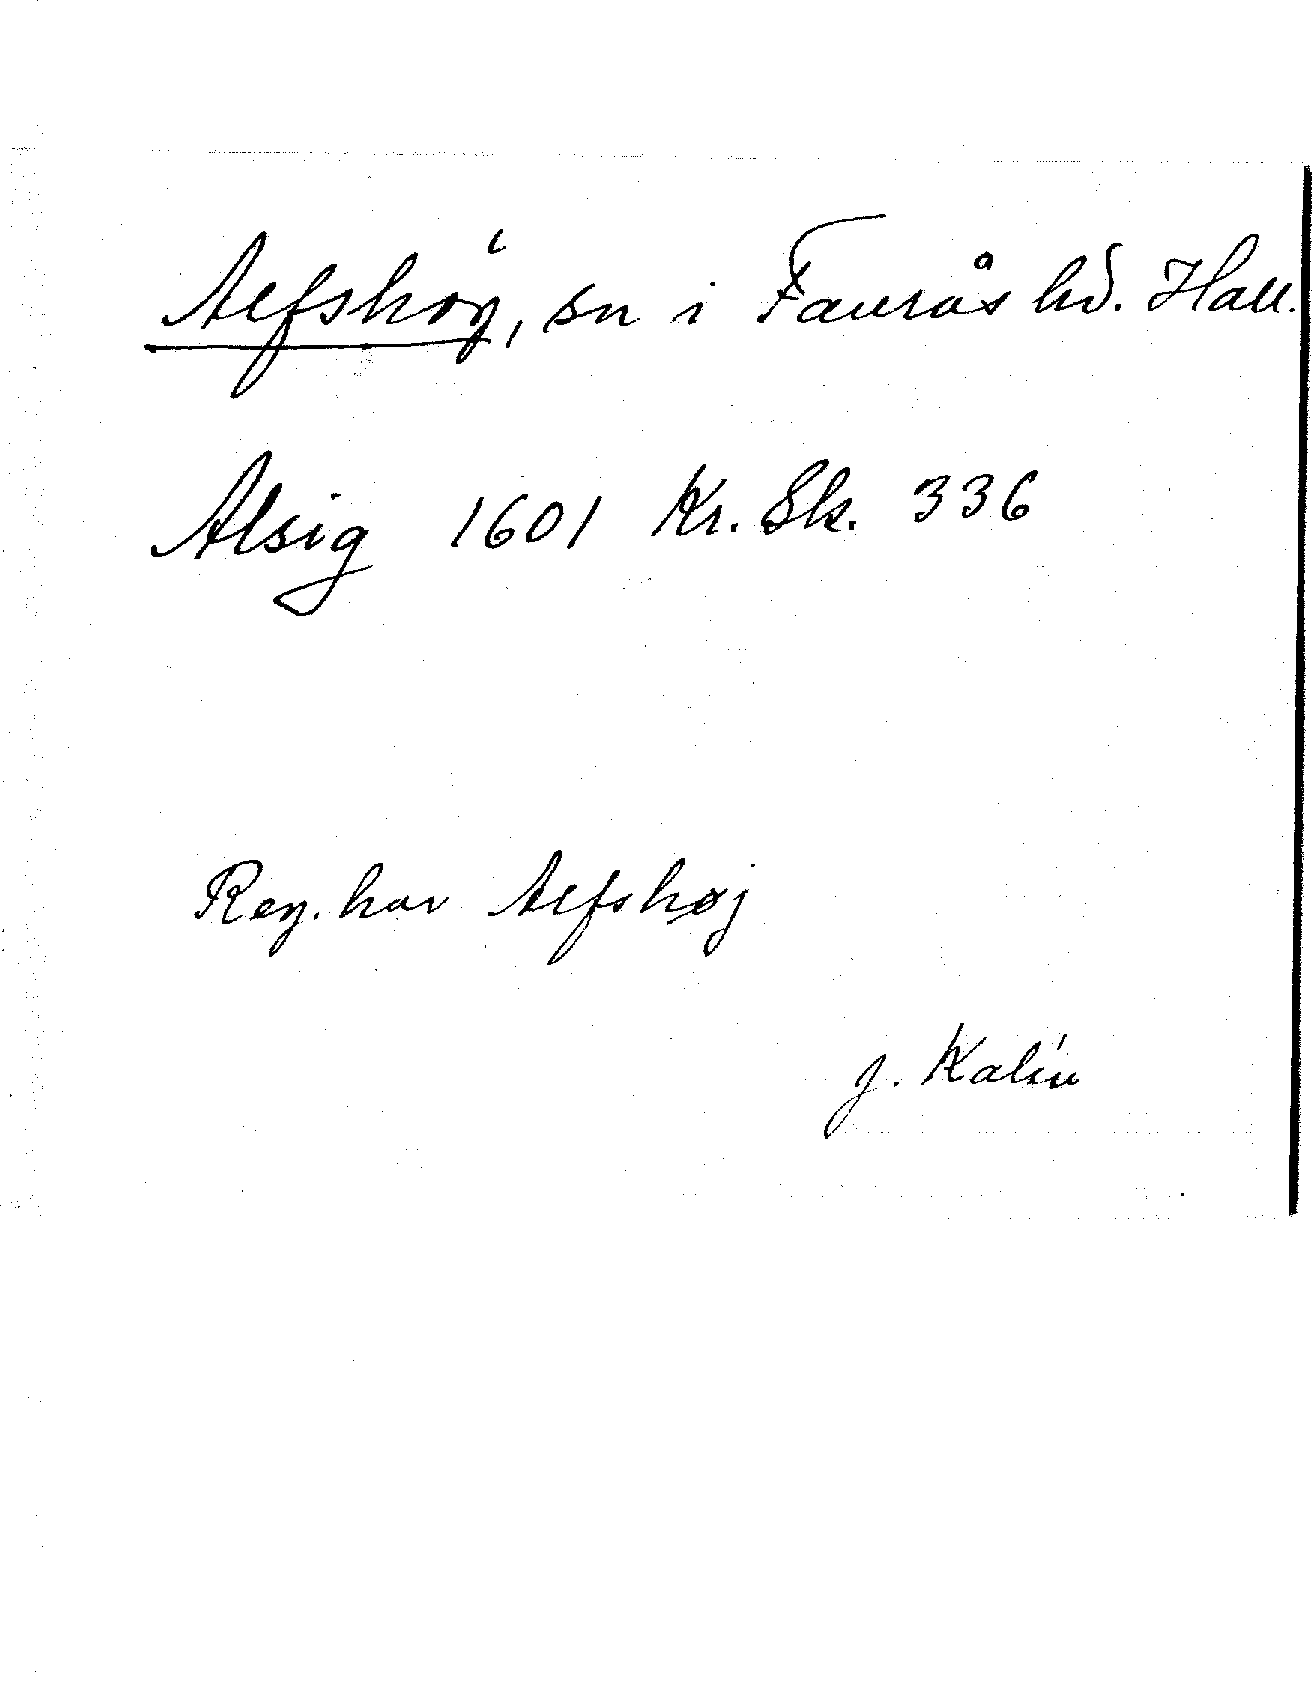 Alfshög, sn i Faurås hd. Hall.
Alsig 1601 Kr. Sk. 336
Reg. har Alfshøj
J. Kalén